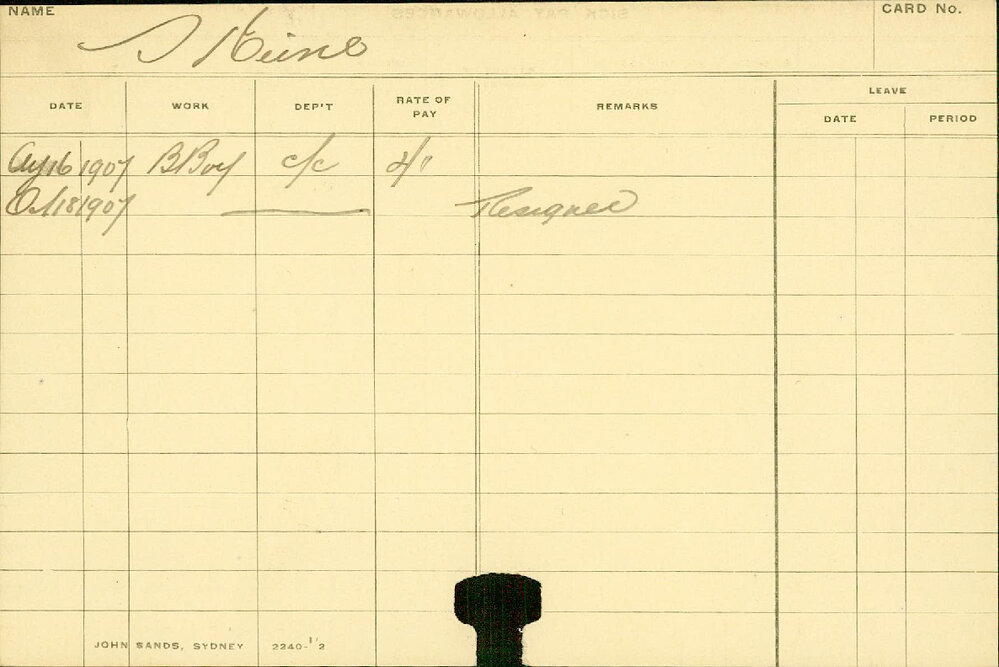 NAME
CARD No.
DATE WORK DEP'T RATE OF PAY REMARKS LEAVE
DATE PERIOD
16 1907 B Boy c/c
Oct 18 1907 Resigned
JOHN SANDS, SYDNEY 2240-1/2